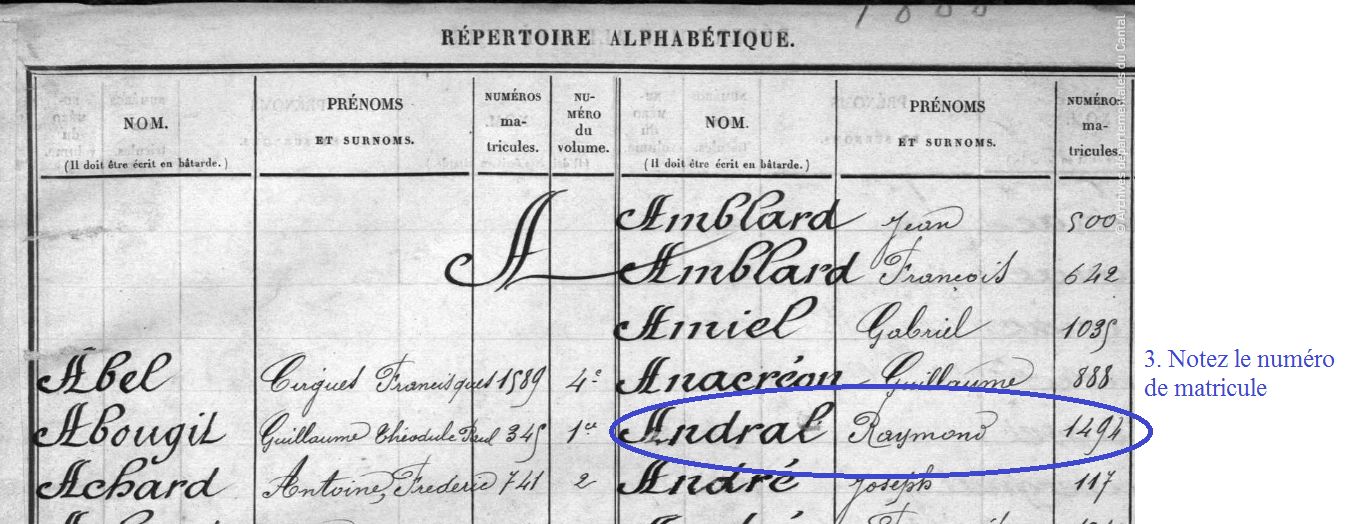 RÉPERTOIRE ALPHABÉTIQUE.
NOM.
(Il doit être écrit en bâtarde.)
PRÉNOMS
ET SURNOMS.
NUMÉROS
ma-
tricules.
NU-
MÉRO
du
volume.
NOM.
(Il doit être écrit en bâtarde.)
PRÉNOMS
ET SURNOMS.
NUMÉROS
ma-
tricules.
A
Abel Cirgues Francisques 1589 4e
Abougit Guillaume Théodule Paul 345 1er
Achard Antoine, Frederic 741 2
Amblard Jean 500
Amblard François 642
Amiel Gabriel 1035
Anacréon Guillaume 888
Andral Raymond 1494
André Joseph 117
3. Notez le numéro
de matricule
© Archives départementales du Cantal